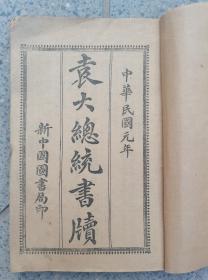 中華民國元年
袁大總統書牘
新中國圖書局印